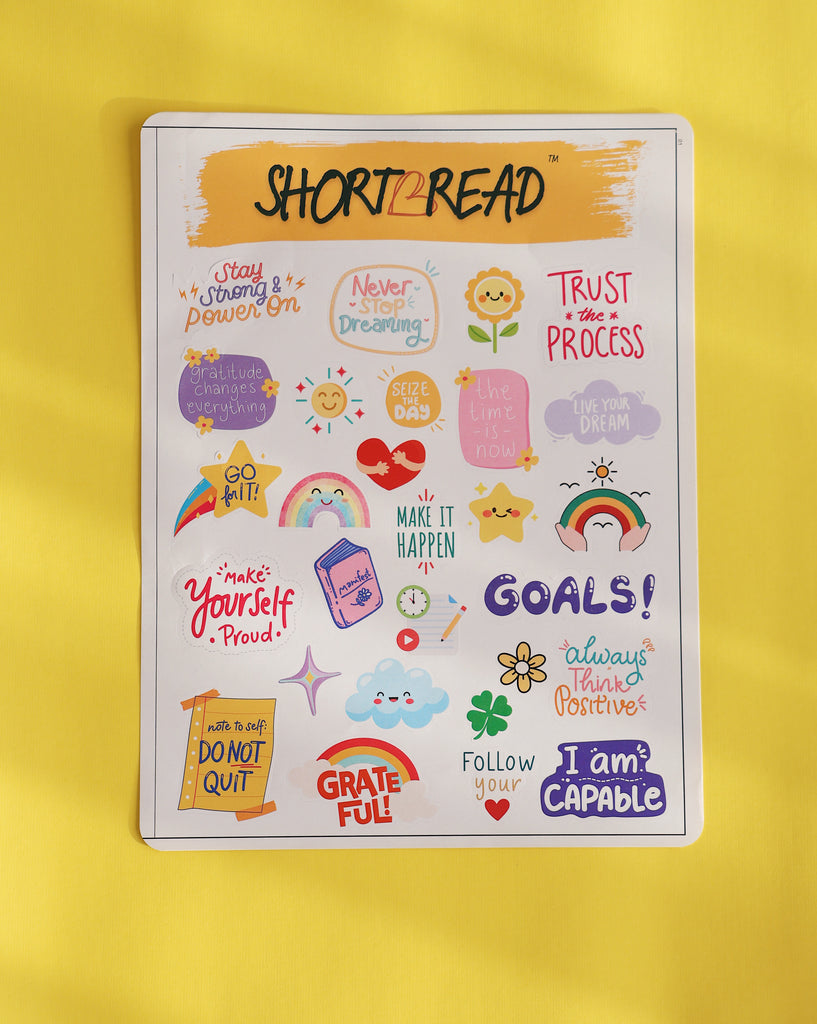 SHORTBREAD™
Stay
Strong &
Power On
Never
STOP
Dreaming
TRUST
the
PROCESS
gratitude
changes
everything
SEIZE
THE
DAY
the
time
-is-
now
LIVE YOUR
DREAM
GO
for IT!
MAKE IT
HAPPEN
Make
Yourself
Proud
manifest
GOALS!
always
Think
Positive
note to self:
DO NOT
QUIT
GRATE
FUL!
FOLLOW
your
I am
CAPABLE